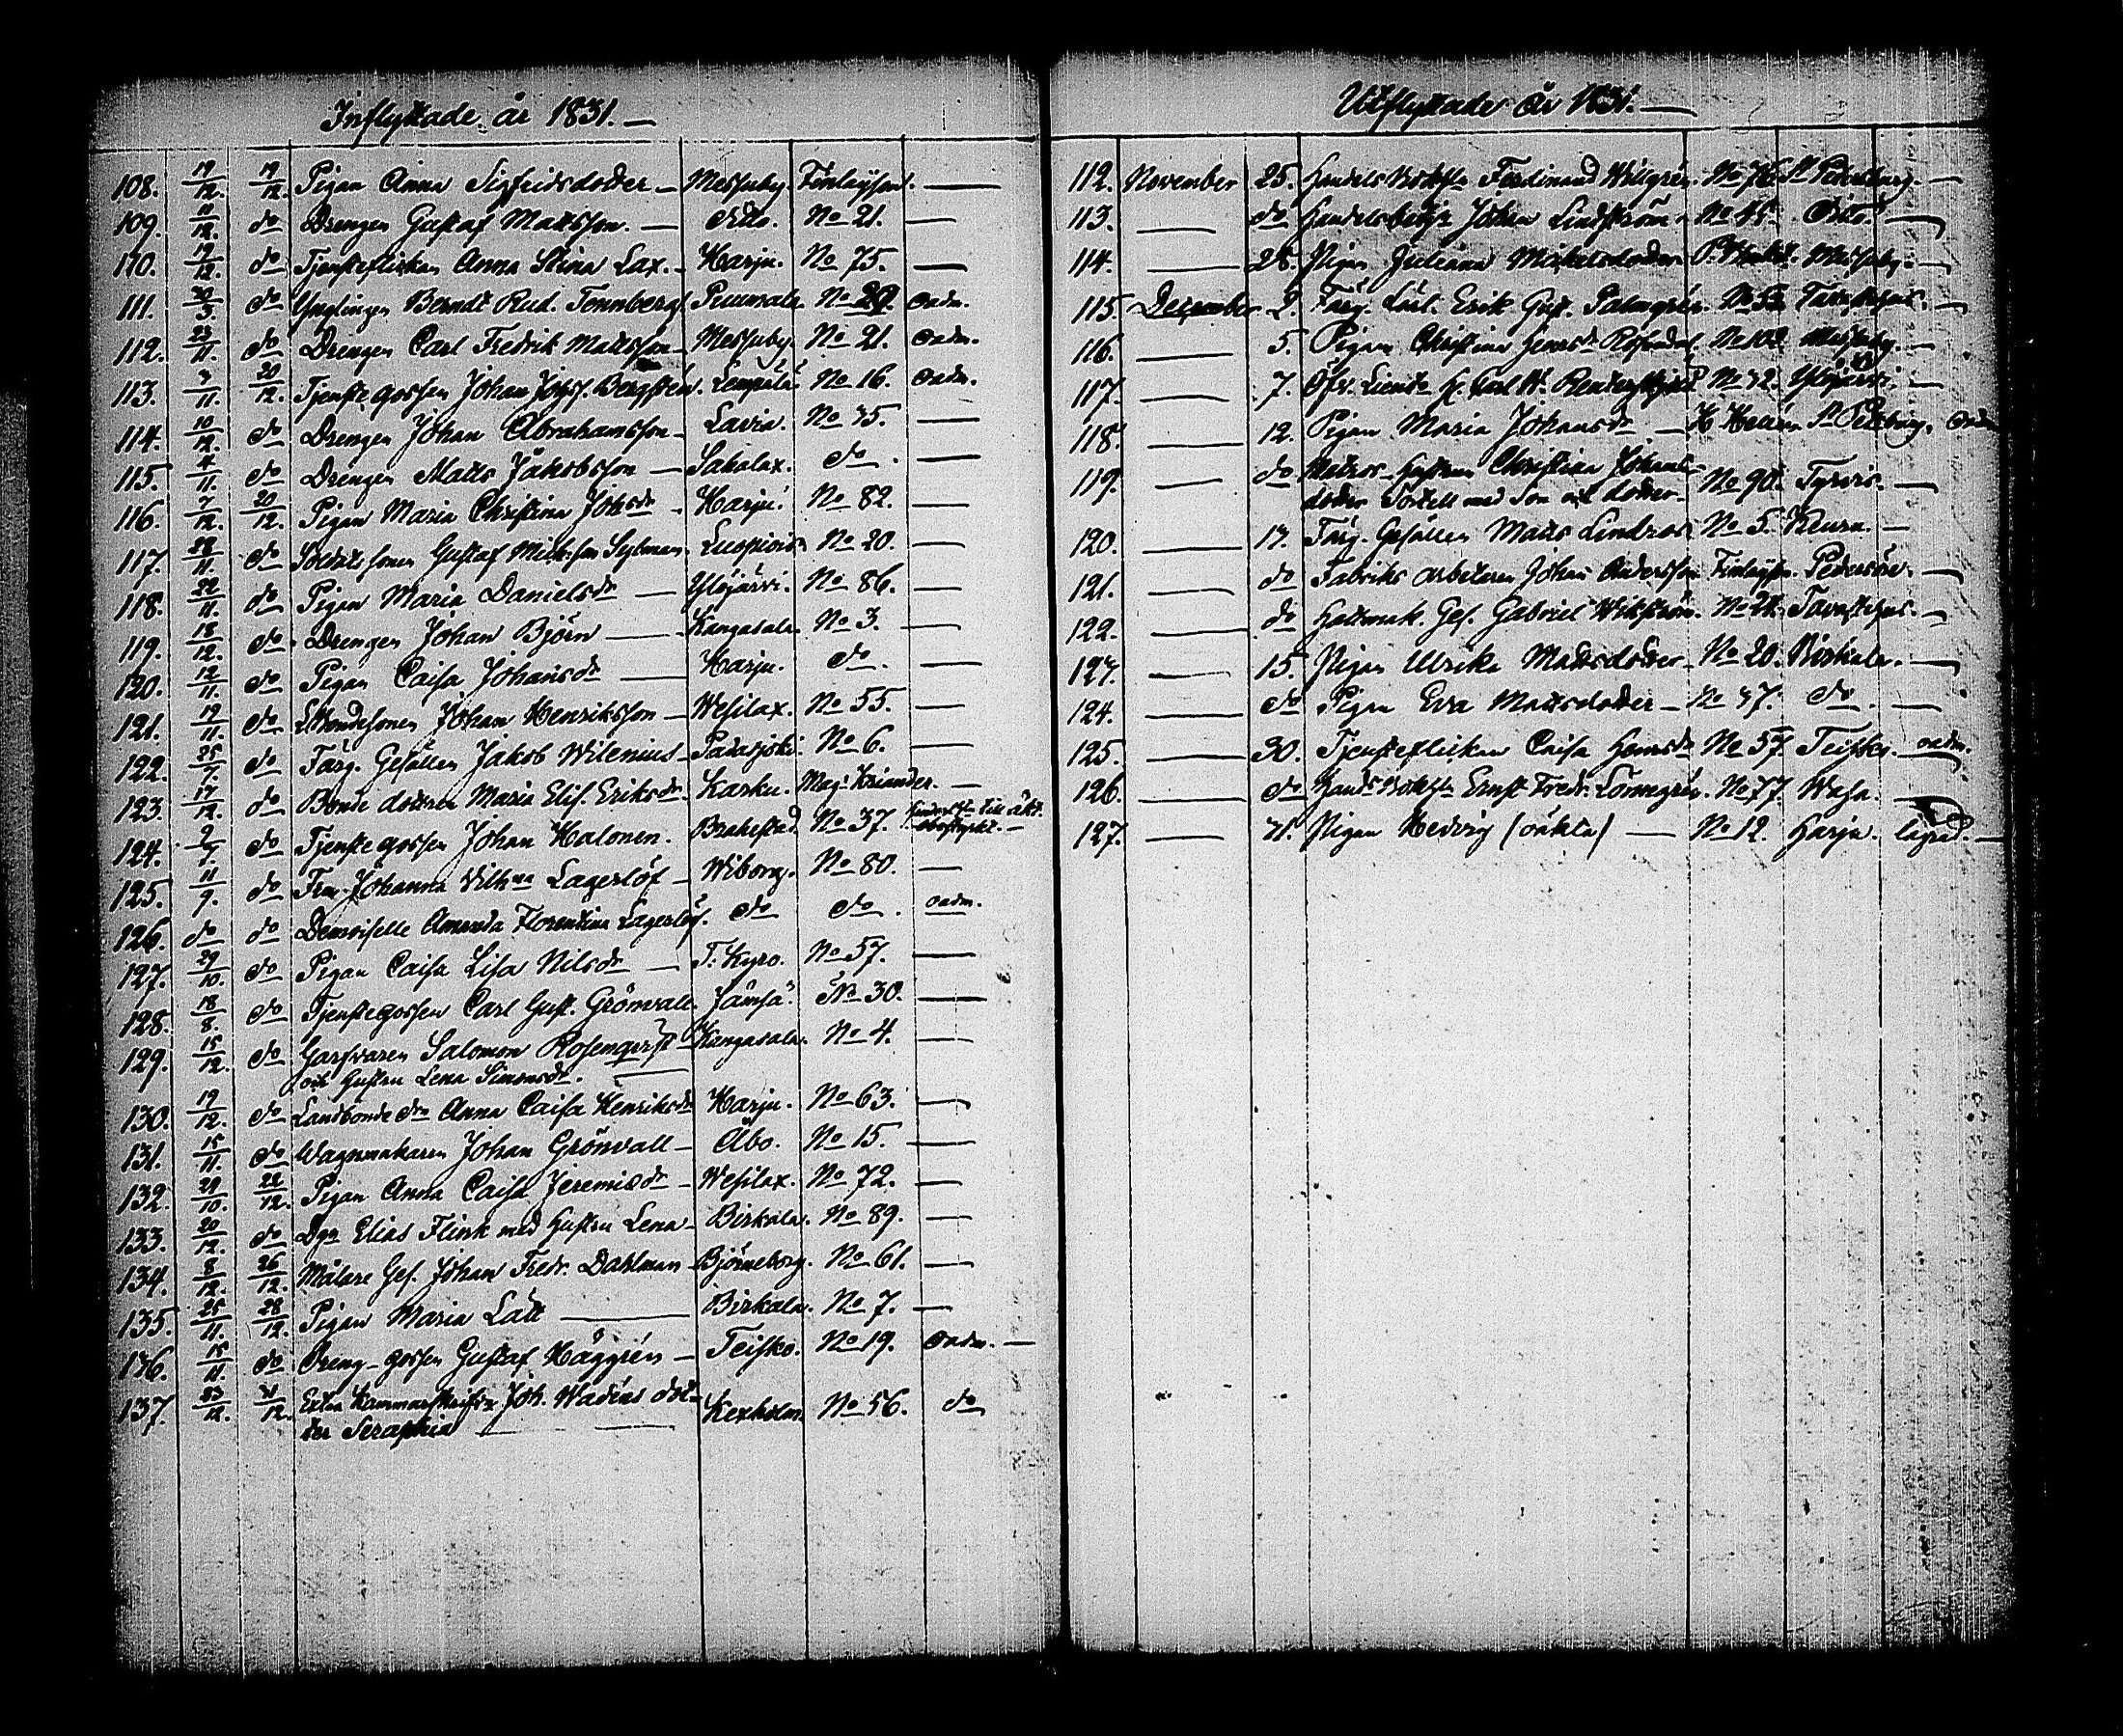 Inflyttade år 1831.
108. 19/12. 19/12. Pigan Anna Sigfridsdotter – Messuby. Finlayson. —
109. 11/12. do Drengen Gustaf Mattsson. — Ditto. No 21. —
110. 19/12. do Tjensteflickan Anna Stina Lax. – Harju. No 75. —
111. 30/3. do Ynglingen Berndt Rud. Tennberg Puumala No 29. oadm.
112. 23/11. do Drengen Carl Fredrik Mattsson Messuby. No 21. oadm.
113. 3/11. 20/12. Tjenste gossen Johan Johss. Bergsten. Lempälä No 16. oadm.
114. 10/12. do Drengen Johan Abrahamsson – Lavia. No 35. —
115. 4/11. do Drengen Matts Jakobsson — Sahalax. do. —
116. 7/12. 20/12. Pigan Maria Christina Johsdr – Harju. No 82. —
117. 11. do Soldatssonen Gustaf Mickson Sylman No 20. —
118. 22/11. do Pigan Maria Danielsdr — Ylöjärvi. No 86. —
119. 18/12. do Drengen Johan Björn — Kangasala. No 3. —
120. 12/11. do Pigan Caisa Johansdr — Harju. do. —
121. 19/11. do Johan Henriksson – Wesilax. No 55. —
122. 25/7. do Färg. Gesällen Jakob Wilenius – Padasjoki No 6. —
123. 17/12. do Bonde dottren Maria Elis. Eriksdr. Karku. Mag. Kriander. —
124. 2/7. do Tjenste gossen Johan Halonen. Brahestad. No 37. till äkt.
125. 11/9. do Fru Johanna Vilhna Lagerlöf – Wiborg. No 80. —
126. do do Demoiselle Amanda Florentina Lagerlöf. do do. oadm.
127. 29/10. do Pigan Caisa Lisa Nilsdr — T. Kyro. No 57. —
128. 18/8. do Tjenstegossen Carl Gust. Grönvall. Jämsä. No 30. —
129. 15/12. do Garfvaren Salomon Rosenqvist – Kangasala. No 4. —
och Hustru Lena Simonsdr. —
130. 19/12. do Landbonde dn Anna Caisa Henriksdr Harju. No 63. —
131. 15/11. do Wagnmakaren Johan Grönvall – Åbo. No 15. —
132. 29/10. 22/12. Pigan Anna Caisa Jeremiædr – Wesilax. No 72. —
133. 20/12. do Dgn Elias Flink med Hustru Lena – Birkala. No 89. —
134. 8/12. 26/12. Målare Ges. Johan Fredr. Dahlman – Björneborg. No 61. —
135. 25/11. 28/12. Pigan Maria Lätt — Birkala. No 7. —
136. 15/11. do Dreng-gossen Gustaf Häggrén – Teisko. No 19. oadm. —
137. 23/12. 31/12. Extra Kammarskrifvn Joh. Wadéns dot-
ter Seraphia — Kexholm. No 56. do
Utflyttade år 1831. —
112. November 25. Handels Bokhn Ferdinand Willgrén. No 76 St Petersburg. —
113. — do Handelsbetjn Johan Lindström – No 45. Ditto —
114. — 28. Pigan Juliana Mickelsdotter Messuby. —
115. December 2. Färg. Lärl. Erik Gust. Palmgrén. No 5. Tavastehus. —
116. — 5. Pigan Christina Henrdr No 103 Messuby. —
117. — 7. Öfv. Lieutn H. Carl W. No 32. Ylöjärvi. —
118. — 12. Pigan Maria Johansdr — St Petersburg. oadm
119. — do Hustrun Christina Johans-
dotter med Son och dotter – No 90. Tyrvis. —
120. — 13. Färg. Gesällen Matts Lindroos No 5. Keuru. —
121. — do Fabriks arbetaren Johan Andersson Finlayson. Pedersöre. —
122. — do Hattmak. Ges. Gabriel Wikström. No 24. Tavastehus. —
123. — 15. Pigan Ulrika Mattsdotter – No 20. Birkala. —
124. — do Pigan Eva Mattsdotter – No 37. do. —
125. — 30. Tjensteflickan Caisa Henrsdr No 57 Teisko. oadm.
126. — do Hands Bokhn Ernst Fredr. Lönnegrén. No 77. Wasa. —
127. — 31. Pigan Hedvig (oäkta) — No 12. Harju.